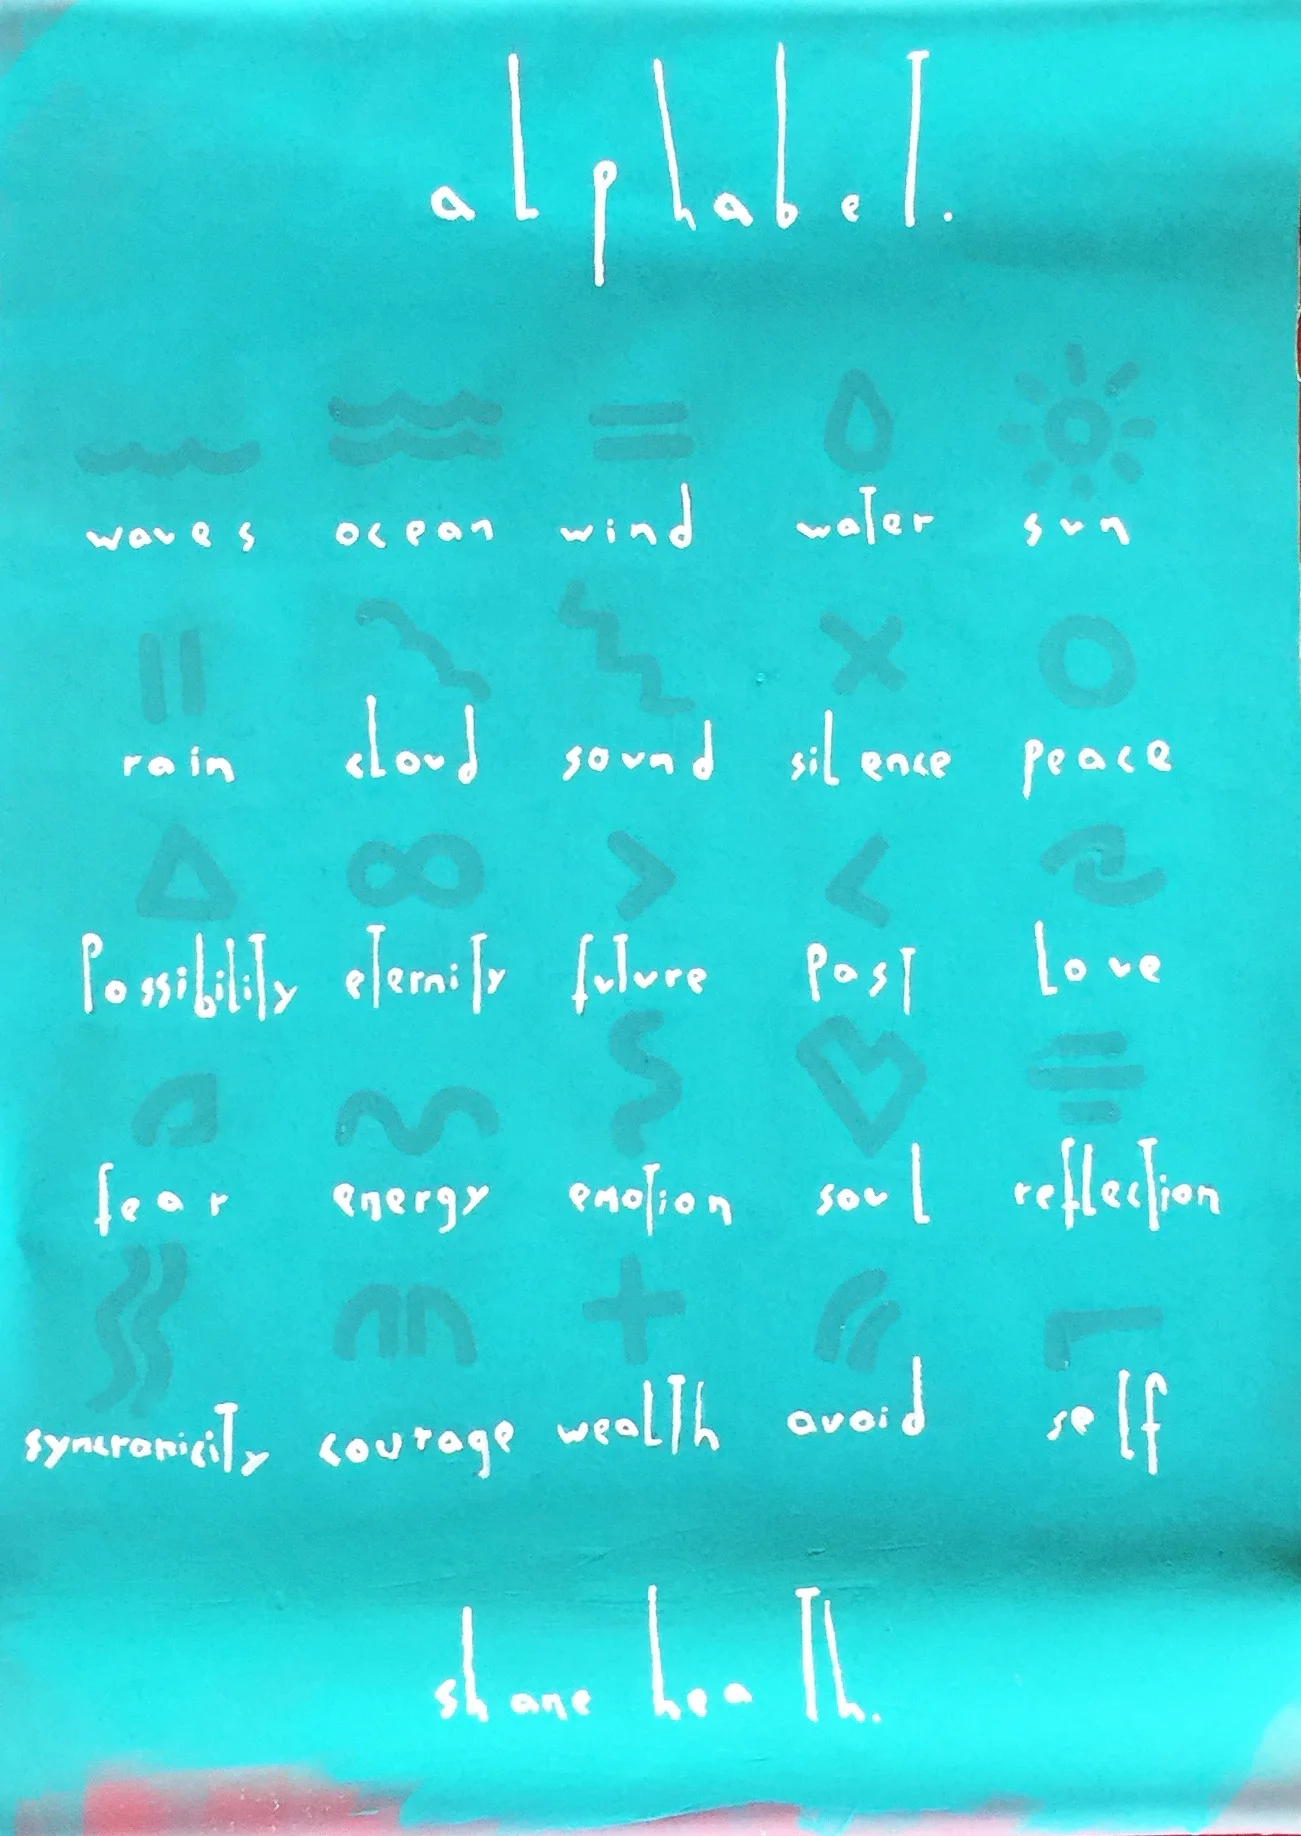 alphabet.
waves ocean wind water sun
rain cloud sound silence peace
Possibility eternity future past love
fear energy emotion soul reflection
syncronicity courage wealth avoid self
shane heath.